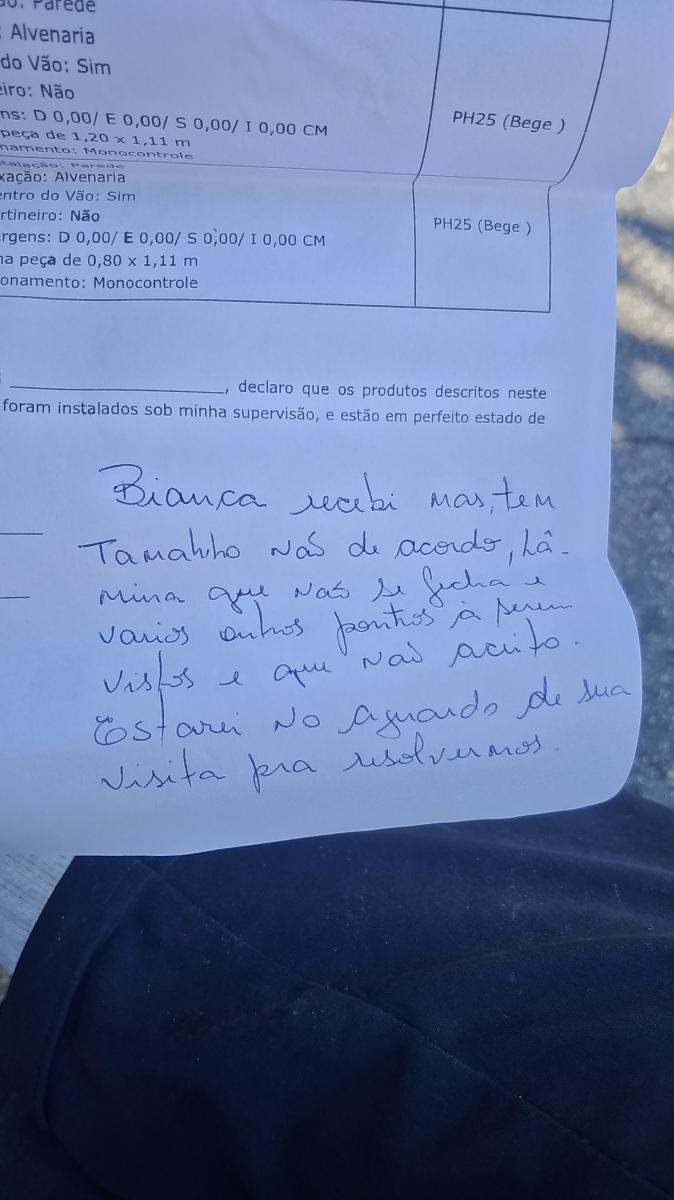 ão: Parede
: Alvenaria
do Vão: Sim
eiro: Não
ns: D 0,00/ E 0,00/ S 0,00/ I 0,00 CM
peça de 1,20 x 1,11 m
namento: Monocontrole
PH25 (Bege )
talação: Parede
xação: Alvenaria
entro do Vão: Sim
rtineiro: Não
rgens: D 0,00/ E 0,00/ S 0,00/ I 0,00 CM
na peça de 0,80 x 1,11 m
onamento: Monocontrole
PH25 (Bege )
, declaro que os produtos descritos neste
foram instalados sob minha supervisão, e estão em perfeito estado de
Bianca recebi mas, tem
Tamanho não de acordo, lâ-
mina que não se fecha e
varios outros pontos à serem
vistos e que não aceito.
Estarei no aguardo de sua
visita pra resolvermos.